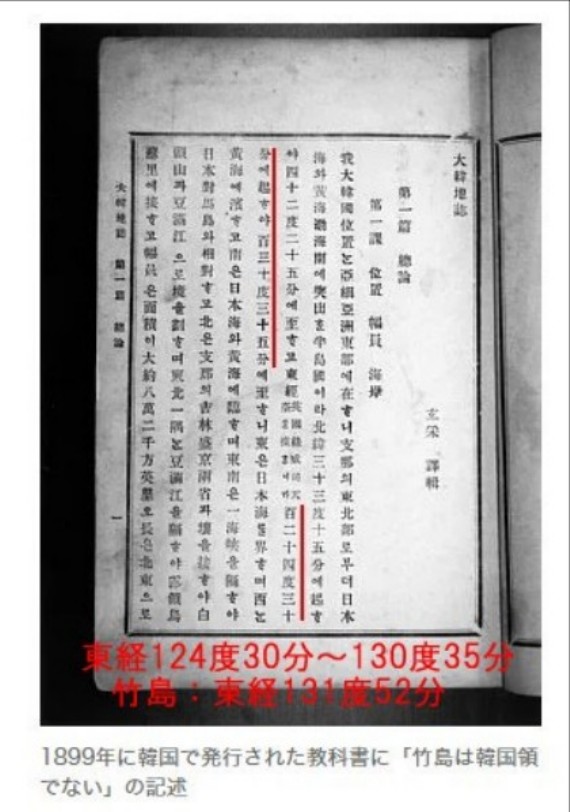 大韓地誌
第一篇 總論
第一課 位置 幅員 海岸
玄采 譯輯
我大韓國位置는亞細亞洲東部에在ᄒᆞ니支那의東北部로부터日本
海와黃海渤海間에突出ᄒᆞᆫ半島國이라北緯三十三度十五分에起ᄒᆞ
야四十二度二十五分에至ᄒᆞ고東經 百二十四度三十
分에起ᄒᆞ야百三十度三十五分에至ᄒᆞ니東은日本海를界ᄒᆞ며西는
黃海에濱ᄒᆞ고南은日本海와黃海에臨ᄒᆞ며東南은一海峽을隔ᄒᆞ야
日本對馬島와相對ᄒᆞ고北은支那의吉林盛京兩省과壤을接ᄒᆞ야白
頭山과豆滿江으로境을劃ᄒᆞ며東北一隅는豆滿江을隔ᄒᆞ야露領烏
蘇里에接ᄒᆞ고幅員은面積이大約八萬二千方英里오長은北東으로
大韓地誌 第一篇 總論 一
東経124度30分～130度35分
竹島：東経131度52分
1899年に韓国で発行された教科書に「竹島は韓国領
でない」の記述